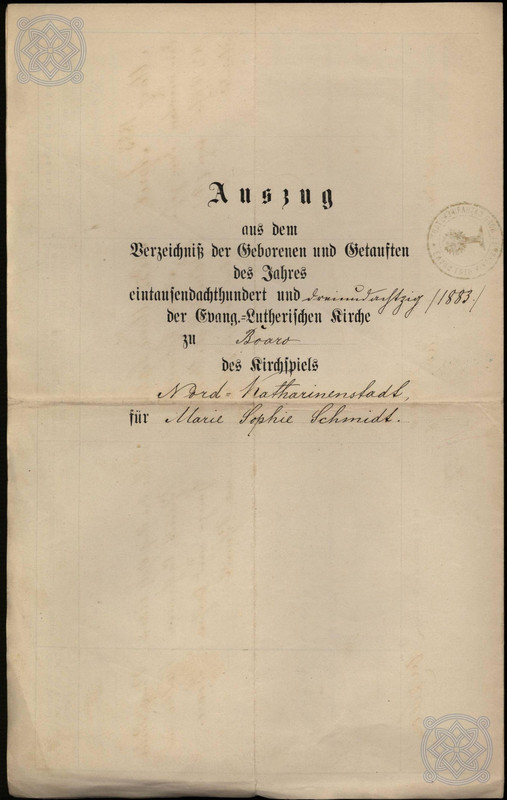 Auszug
aus dem
Verzeichniß der Geborenen und Getauften
des Jahres
eintausendachthundert und dreiundachtzig /1883./
der Evang.-Lutherischen Kirche
zu Boaro
des Kirchspiels
Nord-Katharinenstadt,
für Marie Sophie Schmidt.